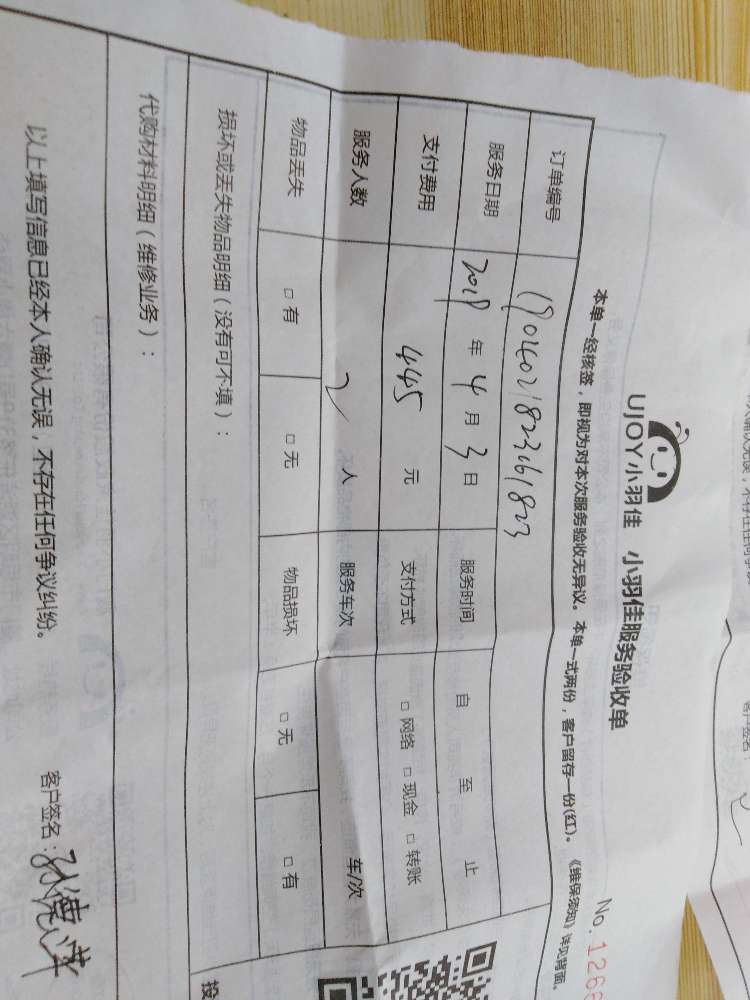 UJOY小羽佳 小羽佳服务验收单
No.1266
本单一经核签，即视为对本次服务验收无异议。本单一式两份，客户留存一份(红)。《维保须知》详见背面。
订单编号 1904021823161823
服务日期 2019年4月3日 服务时间 自 至 止
支付费用 445元 支付方式 □网络 □现金 □转账
服务人数 2人 服务车次 车/次
物品丢失 □有 □无 物品损坏 □无 □有
损坏或丢失物品明细（没有可不填）：
代购材料明细（维修业务）：
以上填写信息已经本人确认无误，不存在任何争议纠纷。 客户签名：孙德萍
投